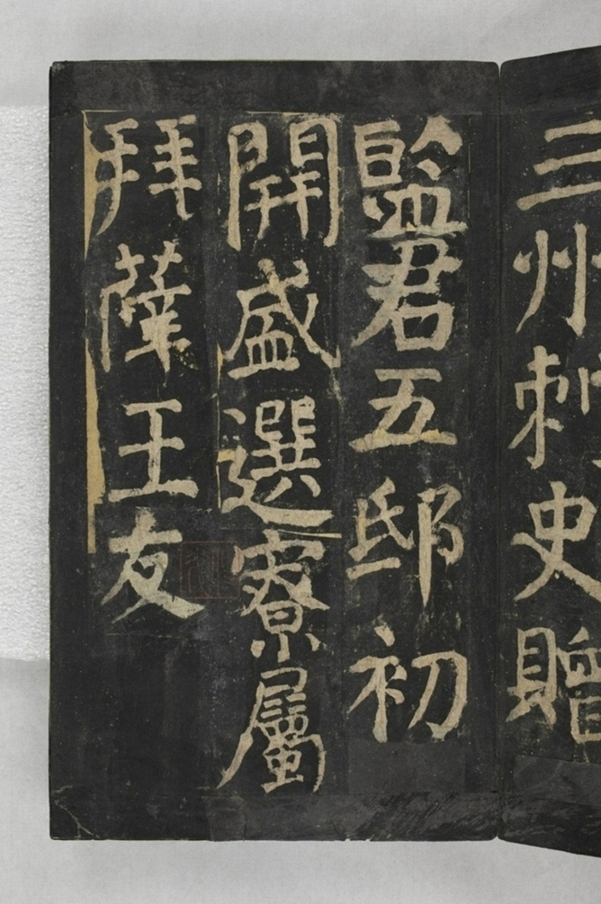 三州刺史贈
監君五邸初
開盛選寮屬
拜薩王友